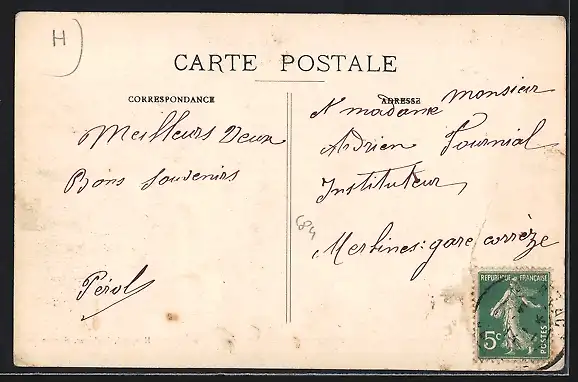 H
CARTE POSTALE
CORRESPONDANCE
Meilleurs Veux
Bons Souvenirs
Pérol
ADRESSE
A madame monsieur
Adrien Fournial
Instituteur
Merlines: gare corrèze
684
REPUBLIQUE FRANÇAISE
5c
POSTES